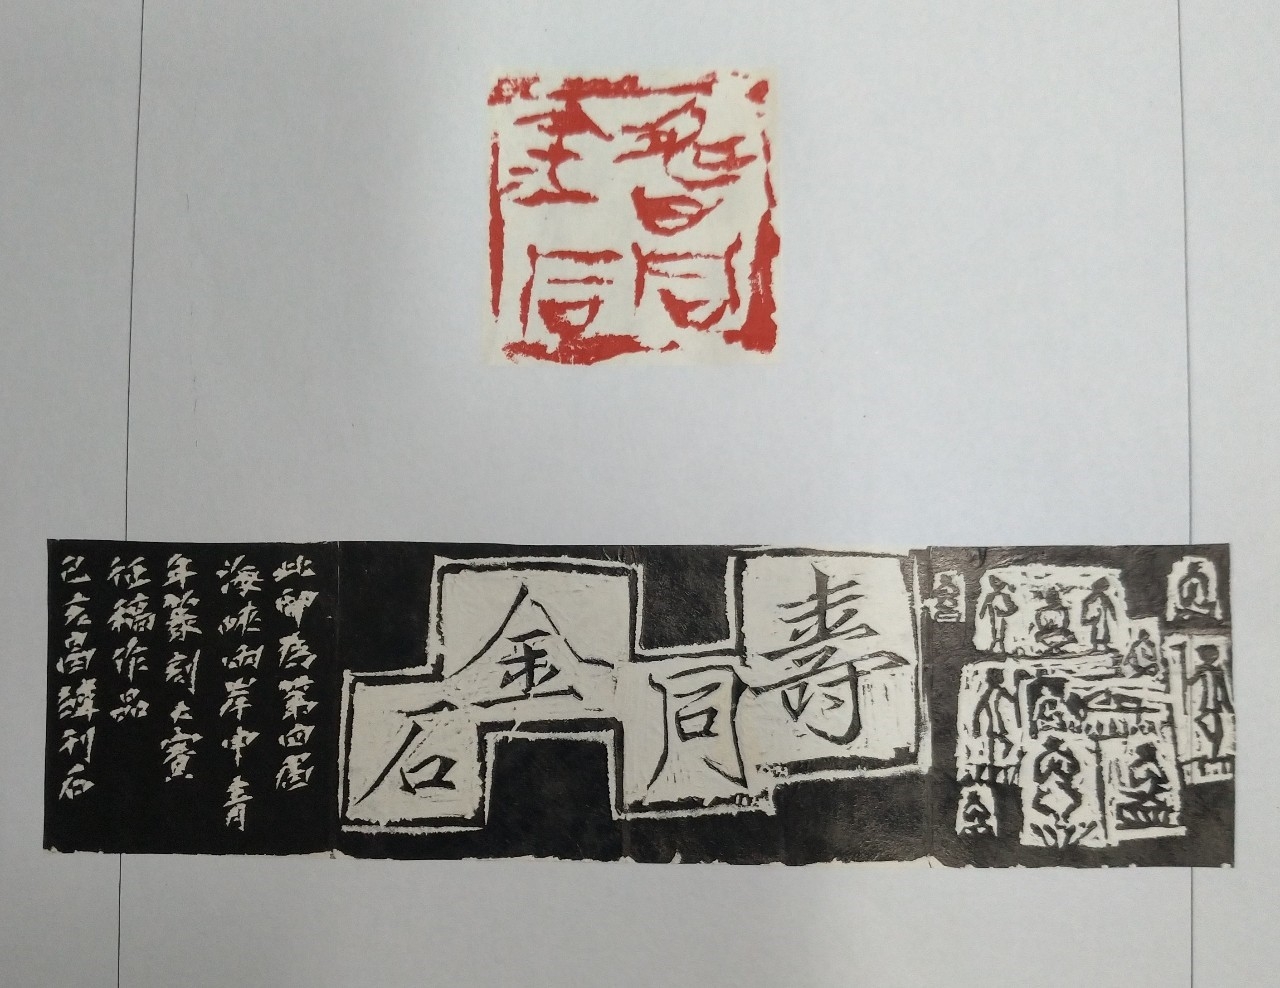 壽同
金石
壽同金石
此印為第四届
海峡两岸中青
年篆刻大賽
征稿作品
己亥昌刊石